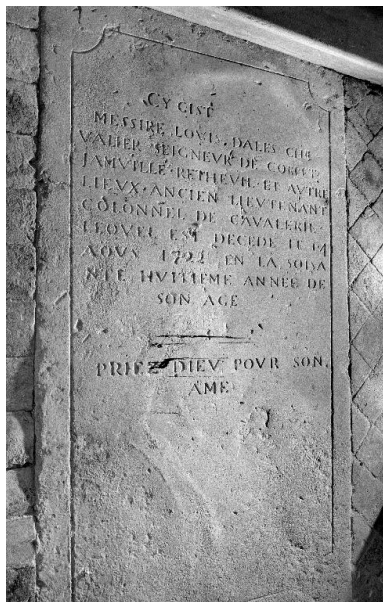 CY GIST
MESSIRE LOVIS · DALES CHE
VALIER SEIGNEVR DE CORBET
JAMVILLE · RETHEVIL · ET AVTRE
LIEVX · ANCIEN LIEVTENANT
COLONNEL DE CAVALERIE ·
LEQVEL EST DECEDE LE 14
AOVS 1722 EN LA SOIXA
NTE HVITIEME ANNEE DE
SON AGE
PRIEZ DIEV POVR SON
AME